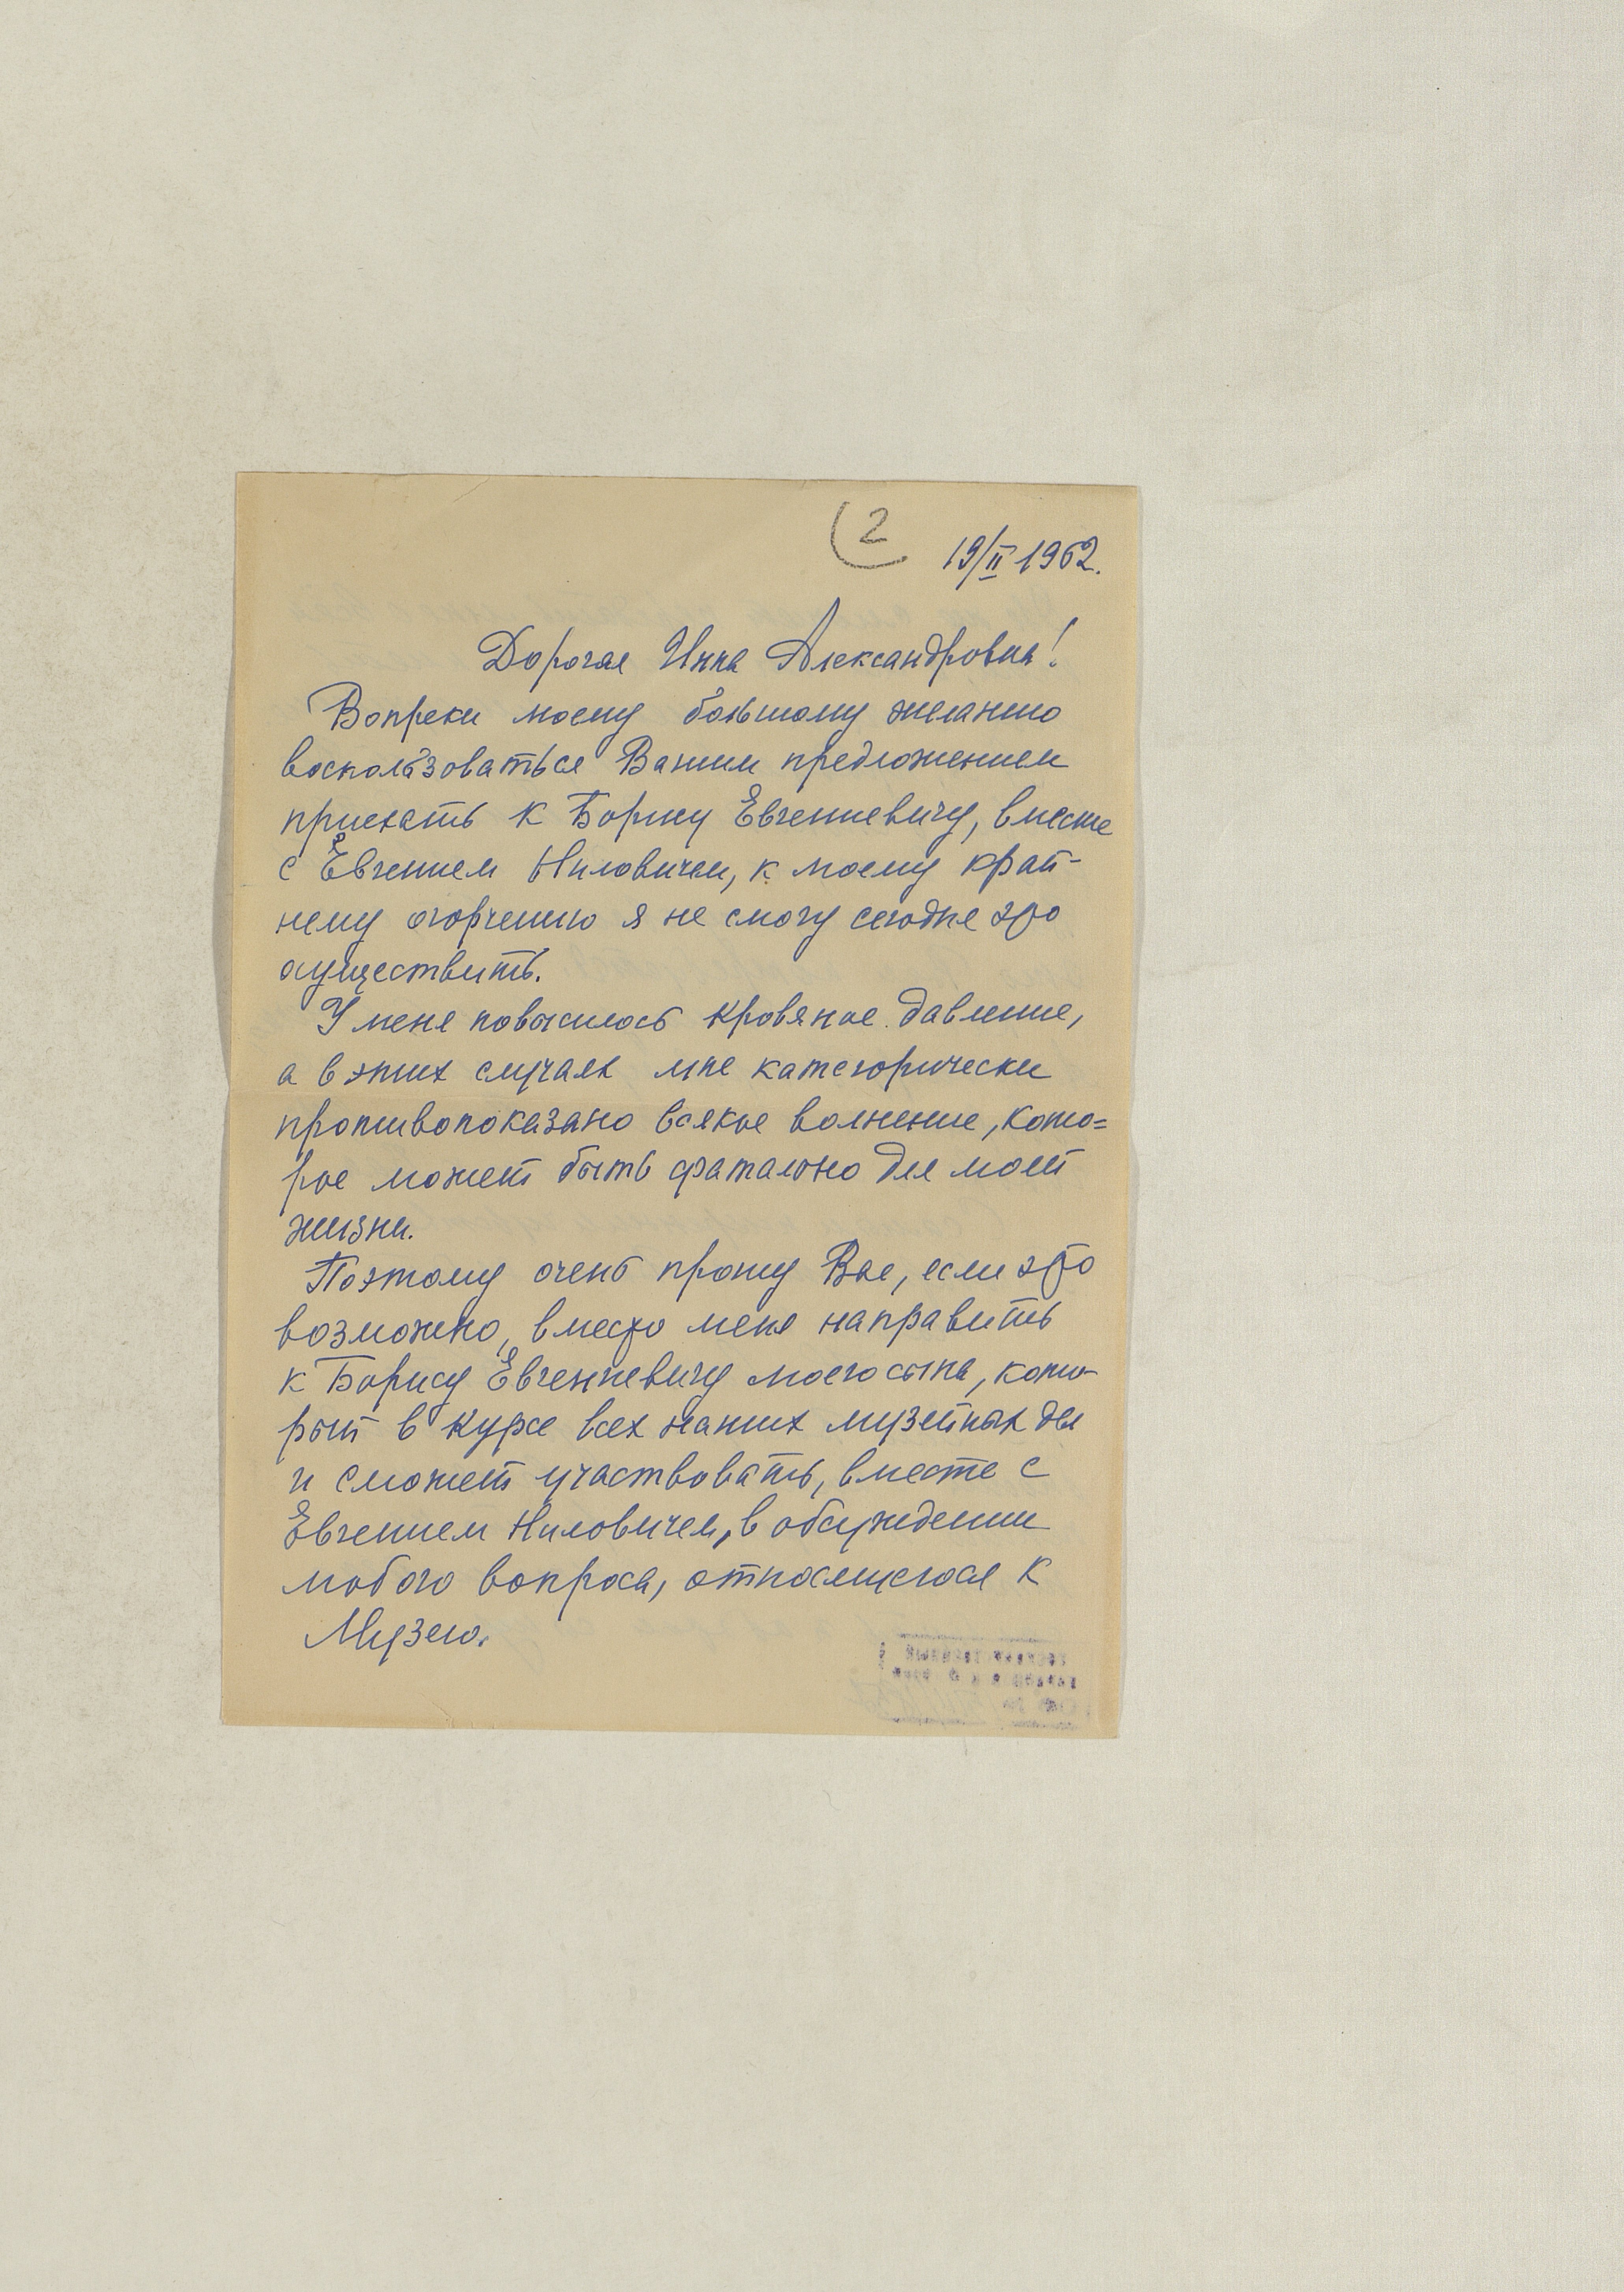 2
19/II 1962.
Дорогая Инна Александровна!
Вопреки моему большому желанию
воспользоваться Вашим предложением
приехать к Борису Евгениевичу, вместе
с Евгением Ниловичем, к моему край-
нему огорчению я не смогу сегодня это
осуществить.
У меня повысилось кровяное давление,
а в этих случаях мне категорически
противопоказано всякое волнение, кото=
рое может быть фатально для моей
жизни.
Поэтому очень прошу Вас, если это
возможно, вместо меня направить
к Борису Евгениевичу моего сына, кото-
рый в курсе всех наших музейных дел
и сможет участвовать, вместе с
Евгением Ниловичем, в обсуждении
любого вопроса, относящегося к
Музею.